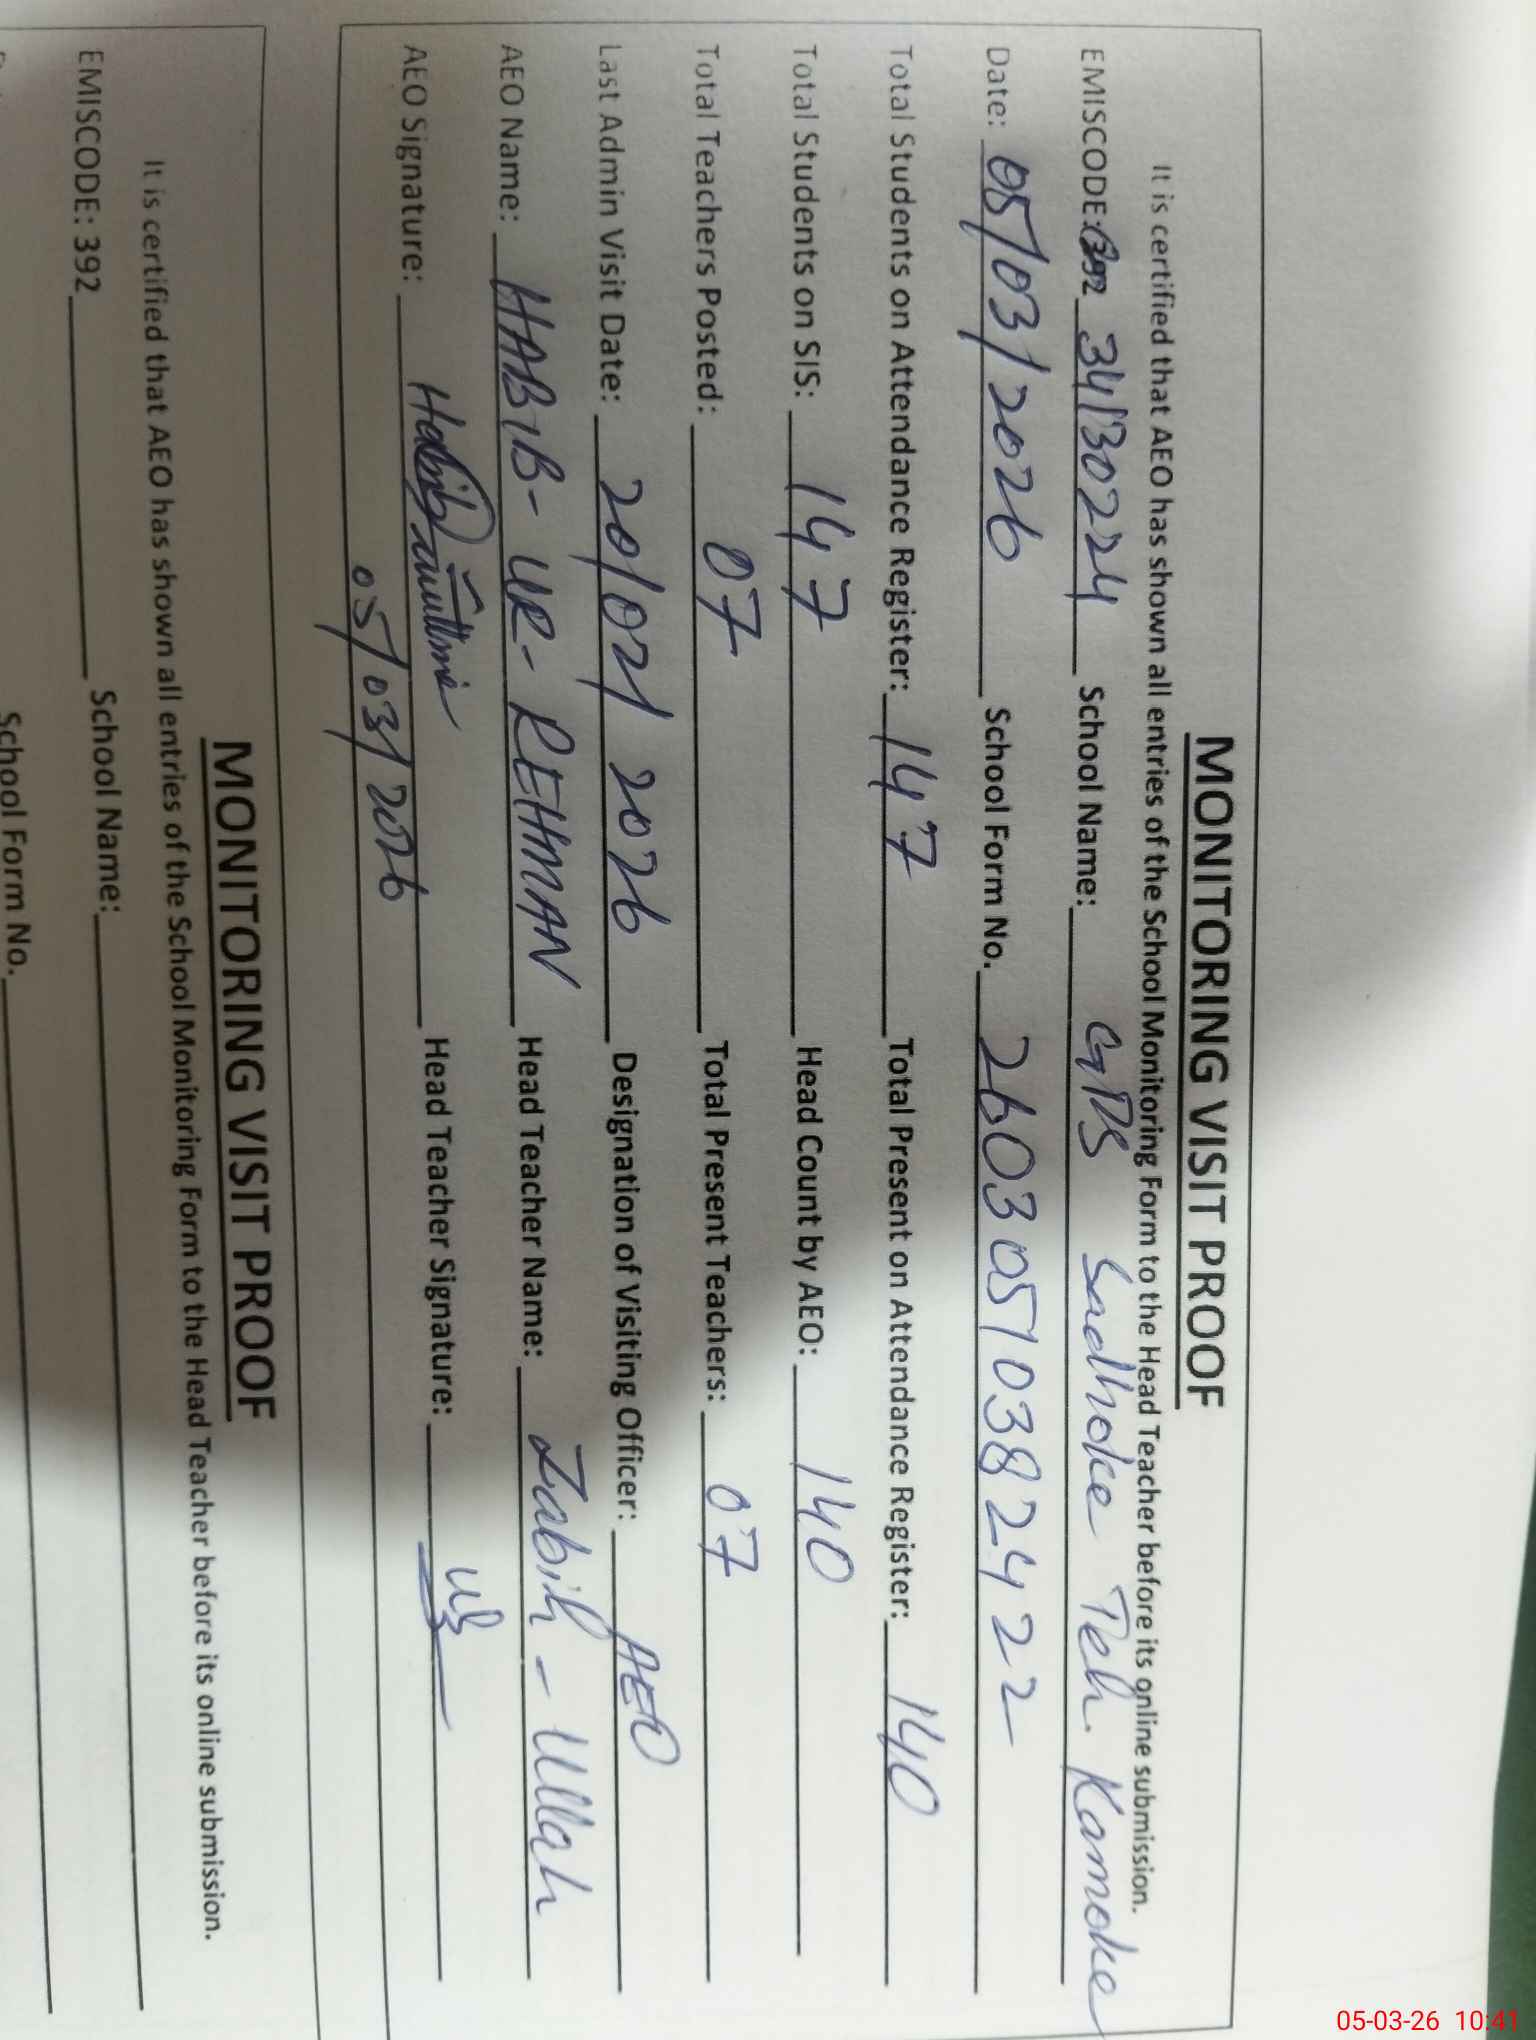 MONITORING VISIT PROOF
It is certified that AEO has shown all entries of the School Monitoring Form to the Head Teacher before its online submission.
EMISCODE: 34130224 School Name: GPS Sadhoke Teh. Kamoke
Date: 05/03/2026 School Form No. 2603051038 2422
Total Students on Attendance Register: 147 Total Present on Attendance Register: 140
Total Students on SIS: 147 Head Count by AEO: 140
Total Teachers Posted: 07 Total Present Teachers: 07
Last Admin Visit Date: 20/02/2026 Designation of Visiting Officer: AEO
AEO Name: HABIB-UR-REHMAN Head Teacher Name: Zabih-Ullah
AEO Signature: Head Teacher Signature:
05/03/2026
MONITORING VISIT PROOF
It is certified that AEO has shown all entries of the School Monitoring Form to the Head Teacher before its online submission.
EMISCODE: 392 School Name:
School Form No.
05-03-26 10:41